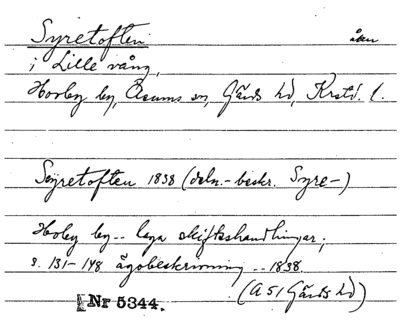 Syretoften åker
i Lille vång,
Horby by, Åsums sn, Gärds hd, Krstd. l.
Syretoften 1838 (deln.-beskr. Syre-)
Horby by -- laga skifteshandlingar;
s. 131-148 ägobeskrivning -- 1838.
(A 51 Gärds hd)
Nr 5344.